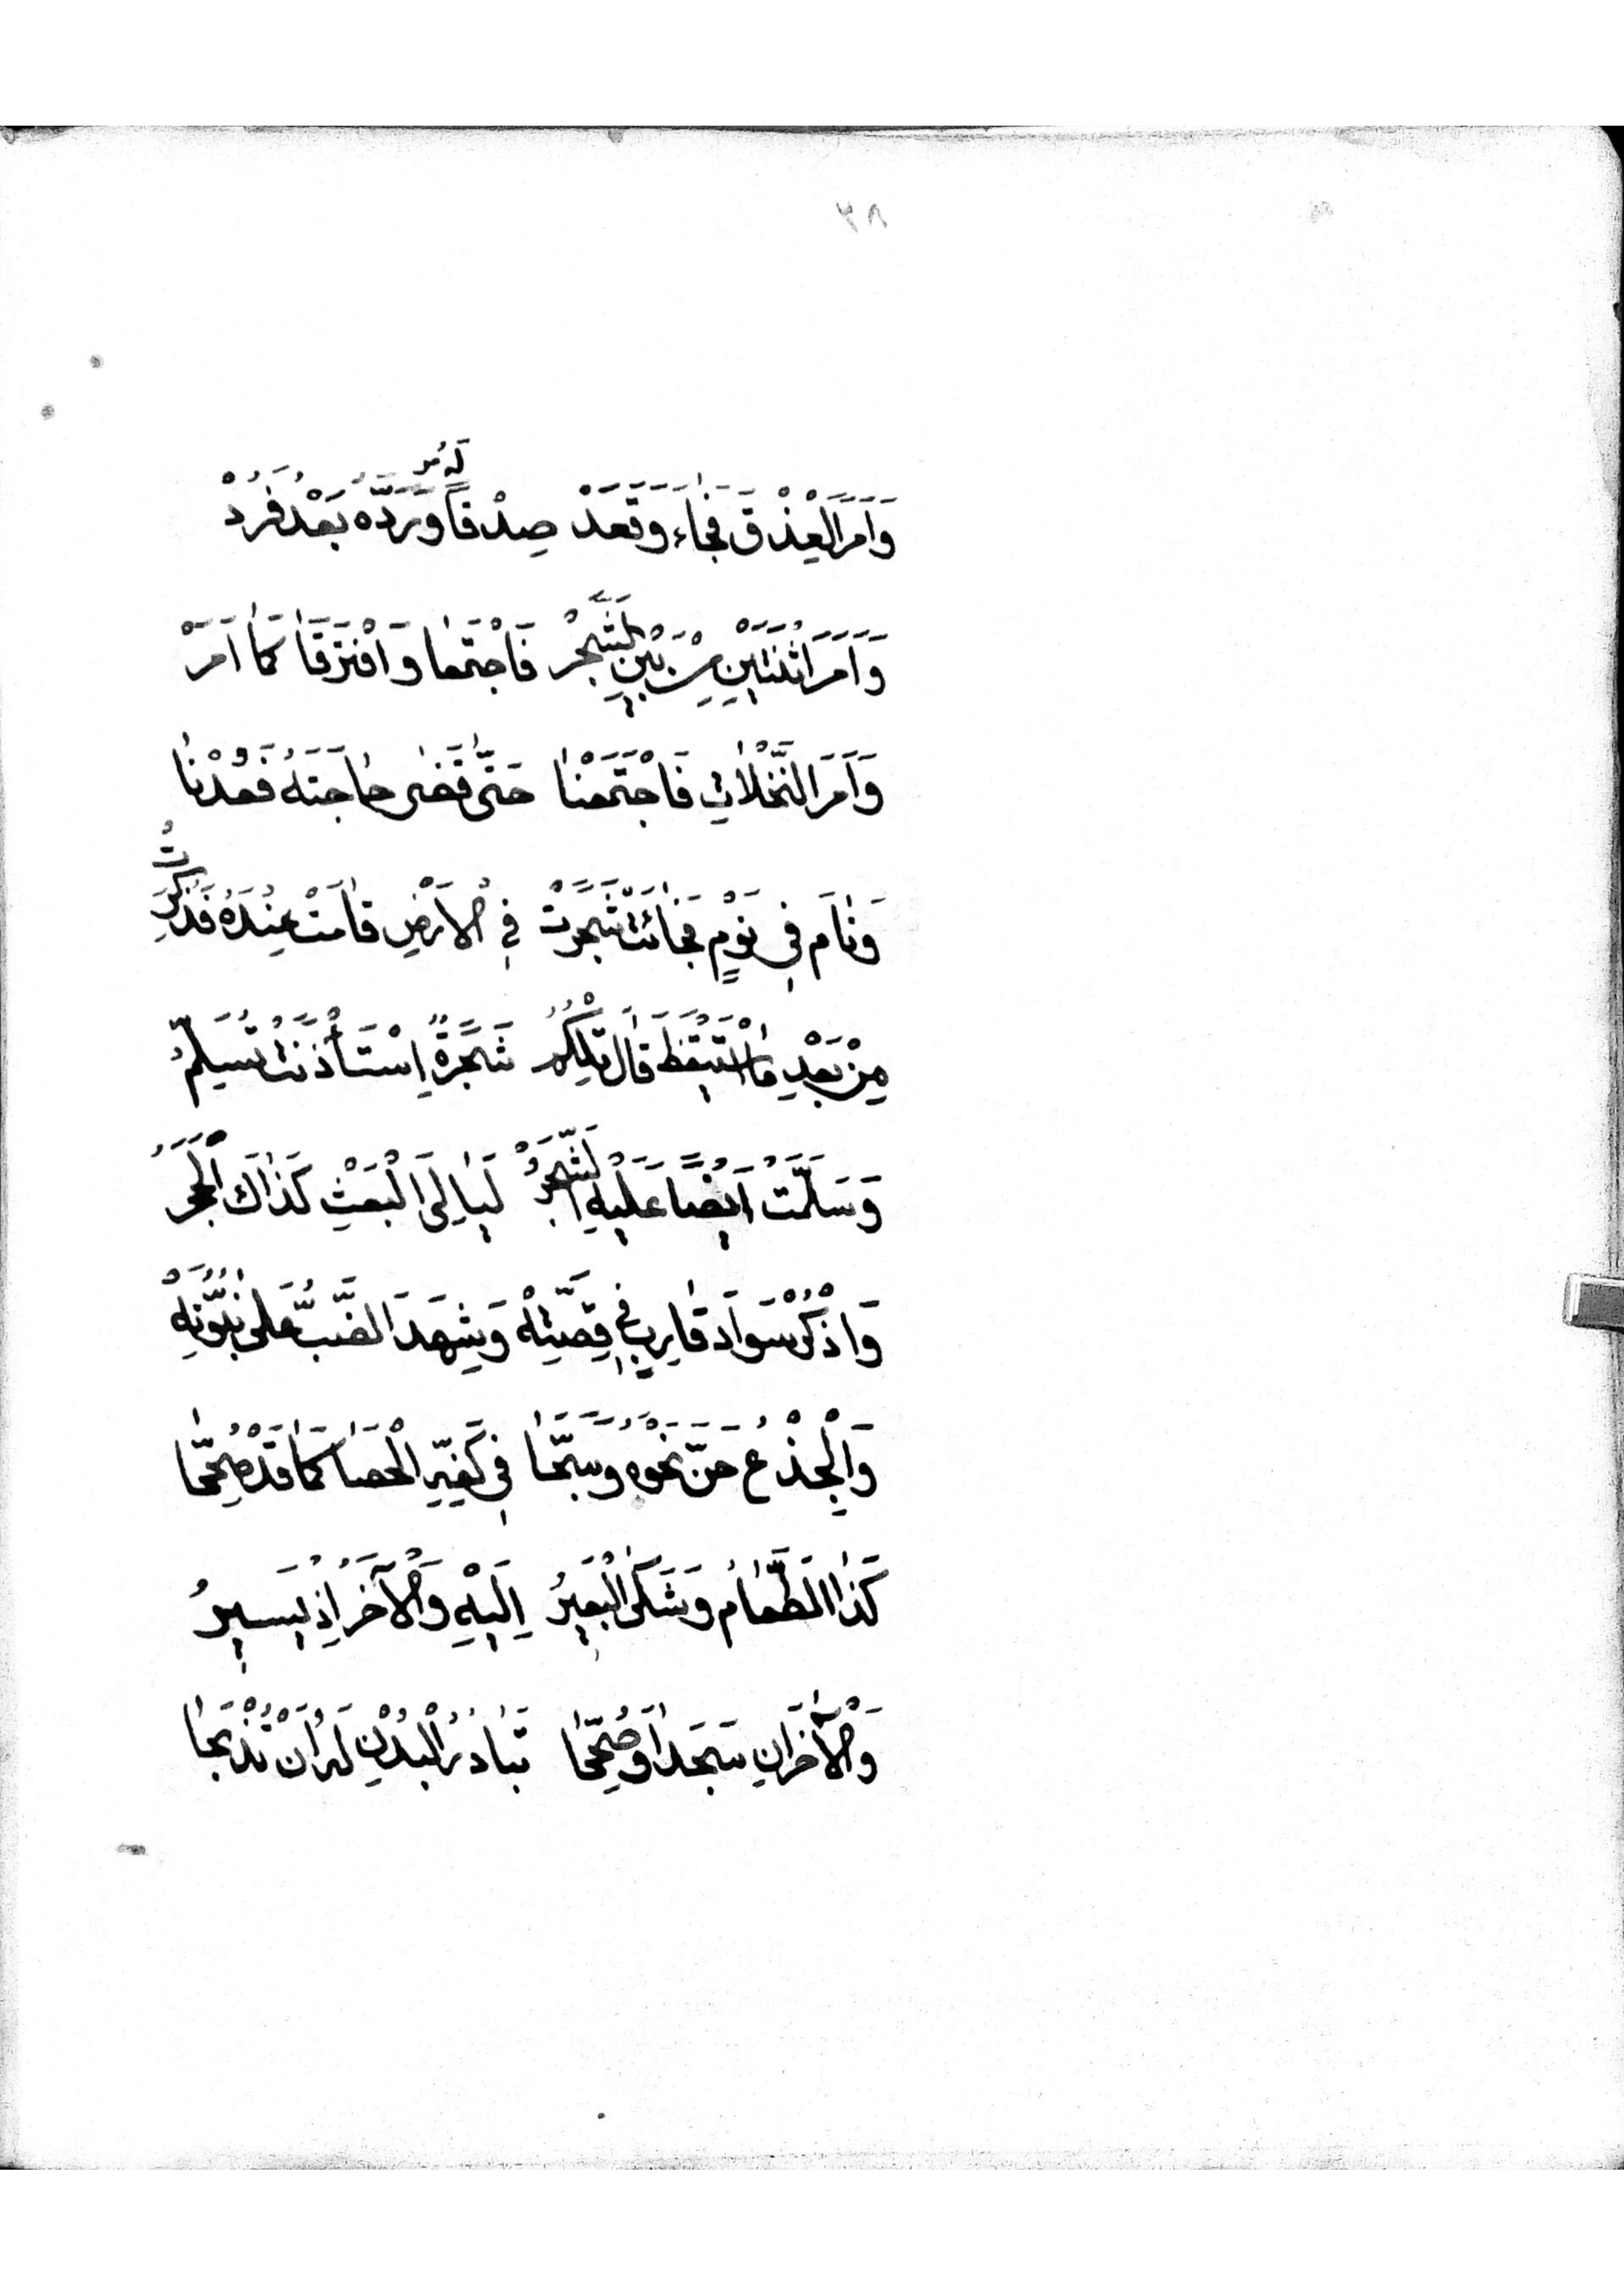 ٣٨
وَاَمَرَ الْعِذْقَ فَجَاءَ وَقَعَدَ صِدْقًا لَهُ وَرَدَّهُ بَعْدُ فَرُدْ
وَاَمَرَ اثْنَتَيْنِ مِنْ بَيْنِ الشَّجَرْ فَاجْتَمَعَا وَافْتَرَقَا كَمَا اَمَرْ
وَاَمَرَ النَّخْلَاتِ فَاجْتَمَعْنَا حَتّٰى قَضٰى حَاجَتَهُ فَعُدْنَا
وَنَامَ فِي نَوْمٍ فَجَائَتْ شَجَرَتْ فِي الْاَرْضِ قَامَتْ عِنْدَهُ فَذُكِرَتْ
مِنْ بَعْدِ مَا اسْتَيْقَظَ قَالَ تِلْكُمُ شَجَرَةٌ اِسْتَأْذَنَتْ تُسَلِّمُ
وَسَلَّمَتْ اَيْضًا عَلَيْهِ الشَّجَرُ لَيَالِيَ الْبَعْثِ كَذَاكَ الْحَجَرُ
وَاذْكُرْ سَوَادَ قَارِبٍ فِي قِصَّتِهْ وَشَهِدَ الضَّبُّ عَلٰى نُبُوَّتِهْ
وَالْجِذْعُ حَنَّ نَحْوَهُ وَسَبَّحَا فِي كَفِّهِ الْحَصَا كَمَا قَدْ صُحِّحَا
كَذَا الطَّعَامُ وَشَكَى الْبَعِيرُ اِلَيْهِ وَالْاٰخَرُ اِذْ يَسِيرُ
وَالْاٰخَرَانِ سَجَدَا وَصُحِّحَا تَبَادُرُ الْبُدْنِ لَهُ اَنْ تُذْبَحَا